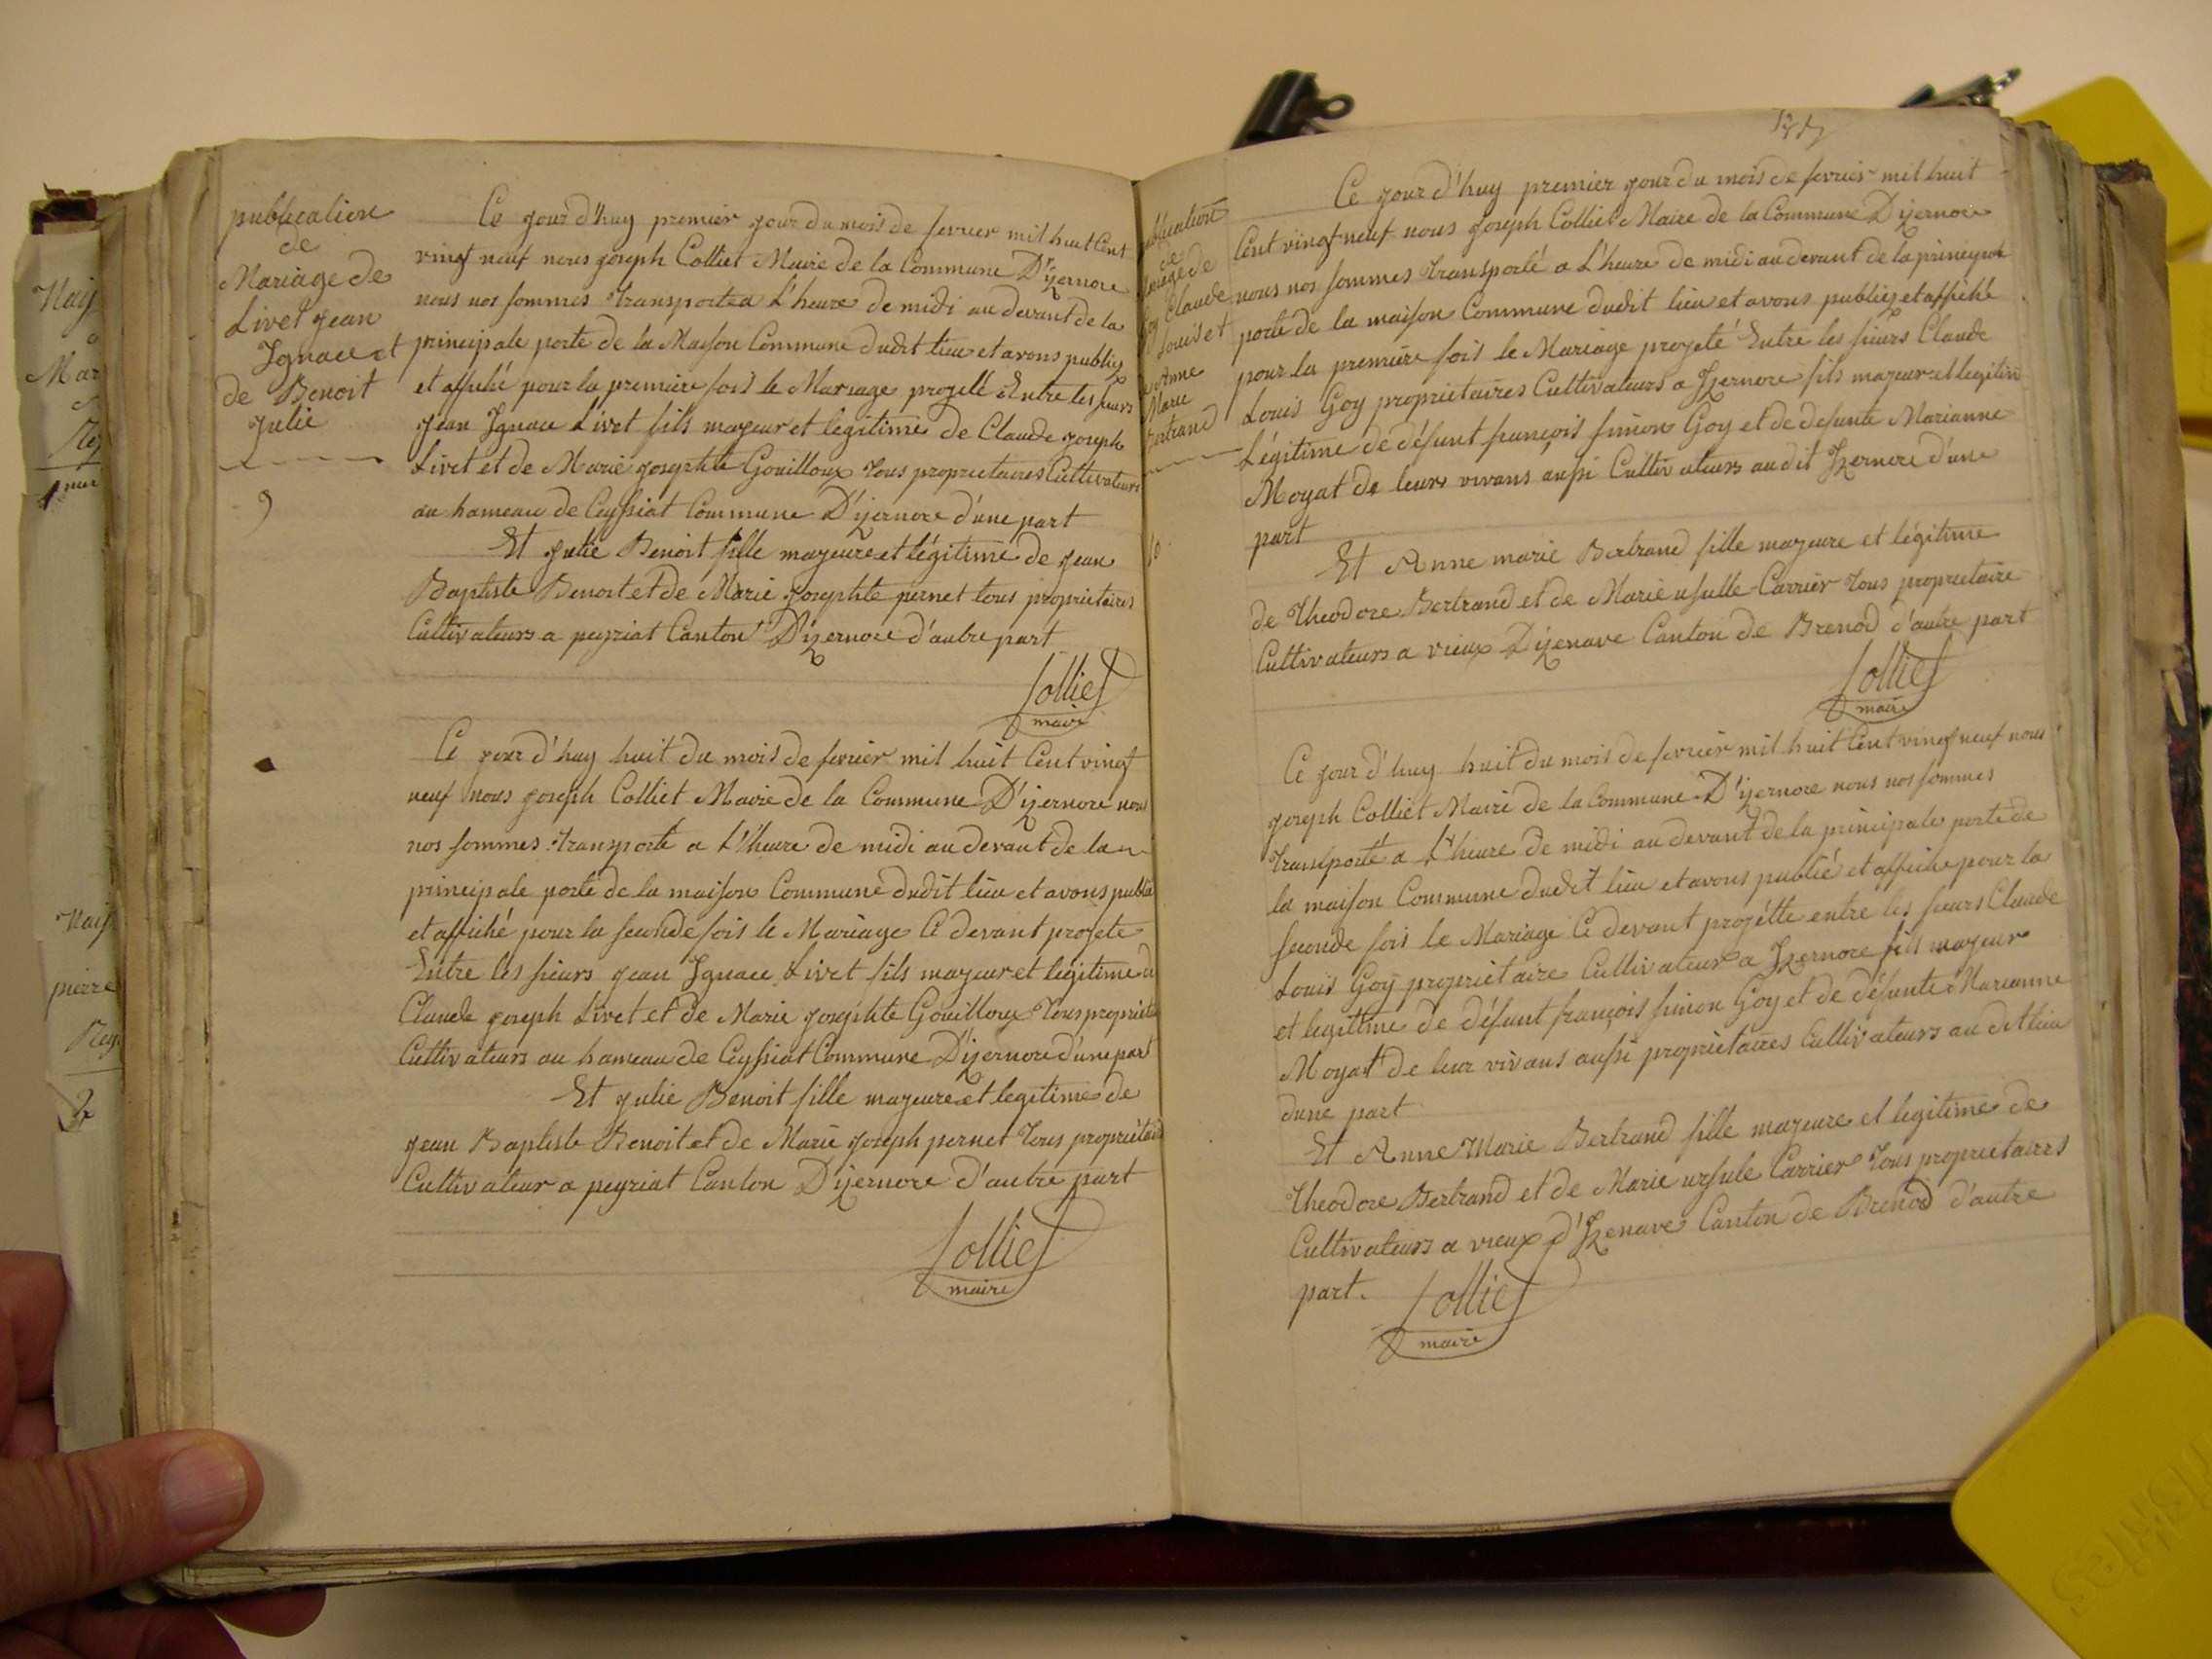 publication
de
Mariage de
Livet jean
Ignace et
de Benoit
Julie
9
Ce jour d'huy premier jour du mois de fevrier mil huit Cent
vingt neuf nous joseph Colliet Maire de la Commune D'izernore
nous nos sommes transporté a L'heure de midi au devant de la
principale porte de la Maison Commune dudit lieu et avons publiez
et affiché pour la premiere fois le Mariage projetté Entre les sieurs
jean Ignace Livet fils majeur et legitime de Claude joseph
Livet et de Marie josephte Gouilloux tous proprietaires Cultivateurs
au hameau de Ceyssiat Commune D'izernore d'une part
Et julie Benoit fille majeure et légitime de jean
Baptiste Benoit et de Marie josephte pernet tous proprietaires
Cultivateurs a peyriat Canton D'izernore d'autre part
Colliet
maire
Ce jour d'huy huit du mois de fevrier mil huit Cent vingt
neuf nous joseph Colliet Maire de la Commune D'izernore nous
nos sommes transporté a L'heure de midi au devant de la
principale porte de la maison Commune dudit lieu et avons publié
et affiché pour la seconde fois le Mariage Ci devant projeté
Entre les sieurs jean Ignace Livet fils majeur et legitime de
Claude joseph Livet et de Marie josephte Gouilloux Tous proprietai
Cultivateurs au hameau de Ceyssiat Commune D'izernore d'une part
Et julie Benoit fille majeure et legitime de
jean Baptiste Benoit et de Marie joseph pernet Tous propriétaire
Cultivateur a peyriat Canton D'izernore d'autre part
Colliet
maire
Claude
Louis et
Anne
Marie
10
Ce jour d'huy premier jour du mois de fevrier mil huit
Cent vingt neuf nous joseph Colliet Maire de la Commune D'izernore
nous nos sommes transporté a L'heure de midi au devant de la principale
porte de la maison Commune dudit lieu et avons publiez et affiché
pour la premiere fois le Mariage projeté Entre les sieurs Claude
Louis Goy proprietaires Cultivateurs a Izernore fils majeur et legitim
Légitime de défunt françois simon Goy et de defunte Marianne
Moyat de leurs vivans aussi Cultivateurs audit Izernore d'une
part
Et Anne marie Bertrand fille majeure et légitime
de Theodore Bertrand et de Marie usulle Carrier Tous proprietaire
Cultivateurs a vieux D'izenave Canton de Brenod d'autre part
Colliet
maire
Ce jour d'huy huit du mois de fevrier mil huit Cent vingt neuf nous
joseph Colliet Maire de la Commune D'izernore nous nos sommes
Transporté a L'heure de midi au devant de la principale porte de
la maison Commune dudit lieu et avons publié et affiché pour la
seconde fois le Mariage Ci devant projétte entre les sieurs Claude
Louis Goÿ proprietaire Cultivateur a Izernore fils majeur
et legitime de défunt françois simon Goy et de défunte Marianne
Moyat de leur vivans aussi proprietaires Cultivateurs au dit lieu
dune part
Et Anne Marie Bertrand fille majeure et legitime de
Theodore Bertrand et de Marie ursule Carrier Tous proprietaires
Cultivateurs a vieux d'Izenave Canton de Brenod d'autre
part.
Colliet
maire